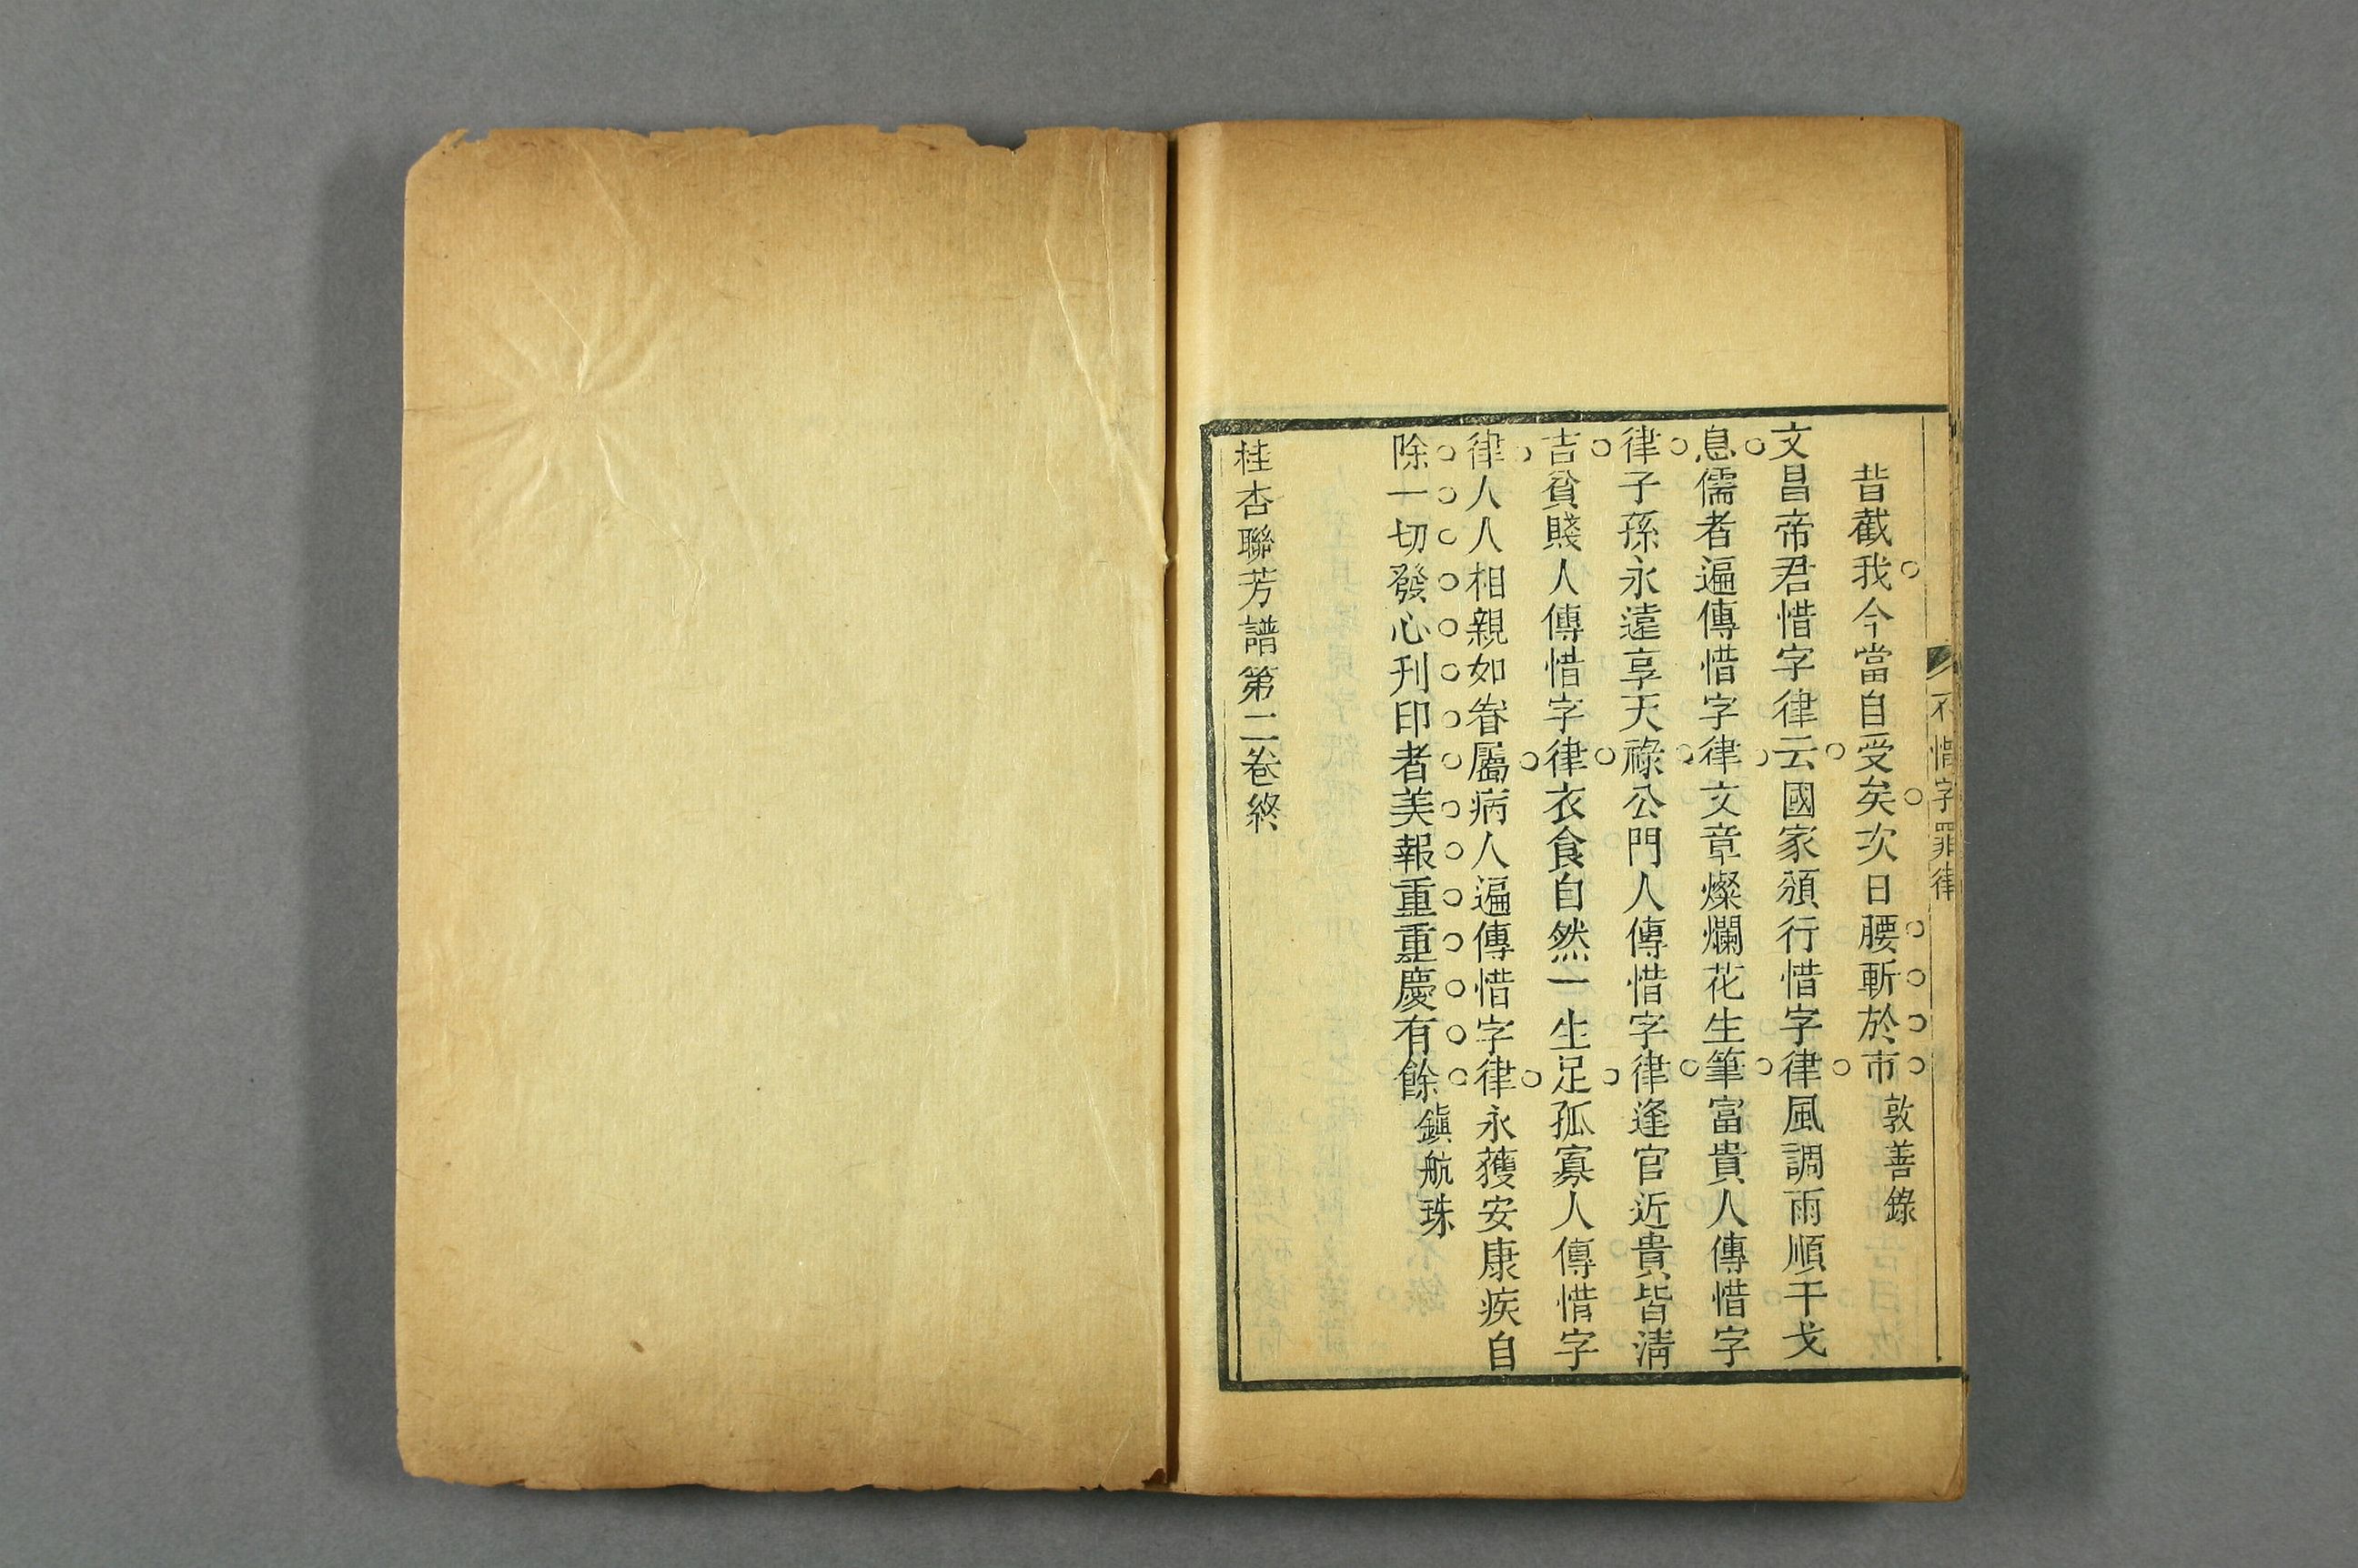 不惜字罪律
昔截我今當自受矣次日腰斬於市敦善錄
文昌帝君惜字律云國家頒行惜字律風調雨順干戈
息儒者遍傳惜字律文章燦爛花生筆富貴人傳惜字
律子孫永遠享天祿公門人傳惜字律逢官近貴皆清
吉貧賤人傳惜字律衣食自然一生足孤寡人傳惜字
律人人相親如眷屬病人遍傳惜字律永獲安康疾自
除一切發心刋印者美報重重慶有餘鎭航珠
桂杏聯芳譜第二卷終